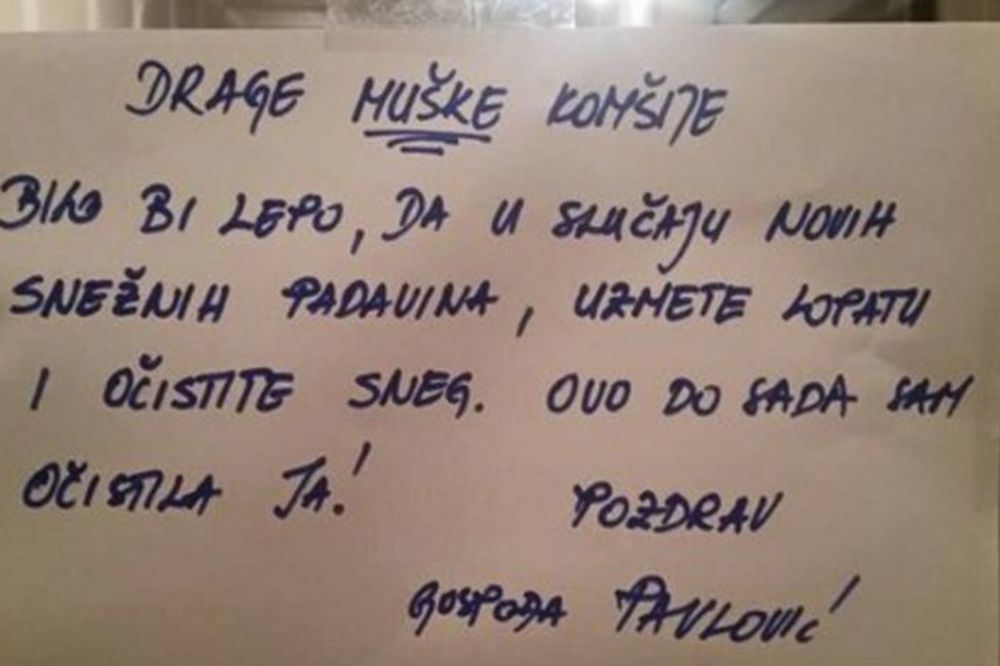 DRAGE MUŠKE KOMŠIJE
BILO BI LEPO, DA U SLUČAJU NOVIH
SNEŽNIH PADAVINA, UZMETE LOPATU
I OČISTITE SNEG. OVO DO SADA SAM
OČISTILA JA!
POZDRAV
GOSPOĐA PAVLOVIĆ